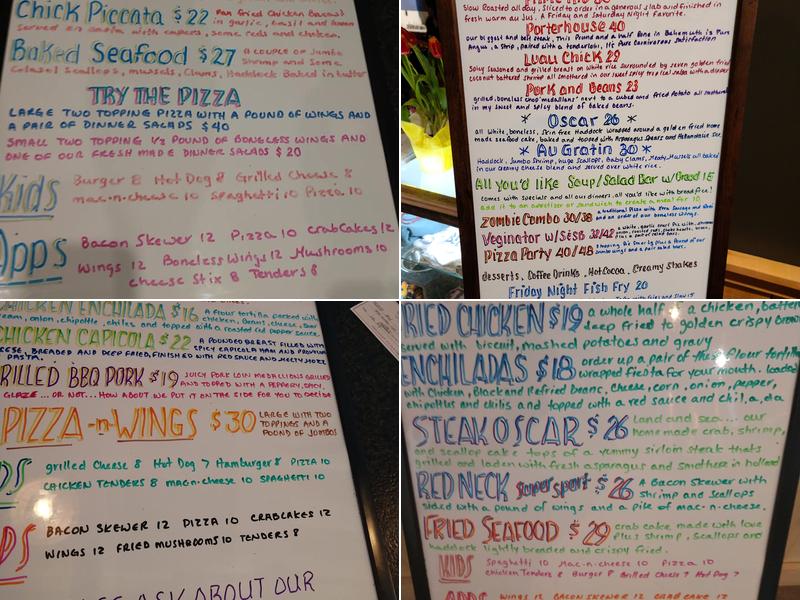 Chick Piccata $22 Pan Fried Chicken Breast
in garlic, basil and
served on pasta with capers, some reds and chicken.
Baked Seafood $27 A couple of Jumbo
Shrimp and Some
Colossal Scallops, mussels, Clams, Haddock Baked in butter
TRY THE PIZZA
LARGE TWO TOPPING PIZZA WITH A POUND OF WINGS AND
A PAIR OF DINNER SALADS $40
SMALL TWO TOPPING 1/2 POUND OF BONELESS WINGS AND
ONE OF OUR FRESH MADE DINNER SALADS $20
Kids
Burger 8 Hot Dog 8 Grilled Cheese 8
mac-n-cheese 10 Spaghetti 10 Pizza 10
Apps
Bacon Skewer 12 Pizza 10 crabCakes 12
Wings 12 Boneless Wings 12 Mushrooms 10
cheese Stix 8 Tenders 8
Slow Roasted all day, sliced to order in a generous slab and finished in
fresh warm au Jus. A Friday and Saturday Night favorite.
Porterhouse 40
our biggest and best steak. This Pound and a half Bone in Behemoth is Pure
Angus, a Strip, paired with a tenderloin, it's Pure Carnivorous Satisfaction
Luau Chick 29
Spicy seasoned and grilled breast on white rice surrounded by seven golden fried
coconut battered shrimp all smothered in our sweet spicy tropical salsa with
Pork and Beans 23
grilled, boneless chop "medallions" next to a cubed and fried Potato all smothered
in my sweet and spicy blend of baked beans.
* Oscar 26 *
all White, boneless, Skin free Haddock wrapped around a golden fried home
made seafood cake, baked and topped with Asparagus Spears and Hollandaise
* Au Gratin 30 *
Haddock, Jumbo Shrimp, huge Scallops, Baby Clams, Meaty Mussels all baked
in our creamy cheese blend and served over white rice.
All you'd like Soup/Salad Bar w/Bread 15
comes with specials and all our dinners. all you'd like with bread free!
add it to an appetizer or sandwich to create a meal for 10
Zombie Combo 30/38
and an order of our boneless wings.
Veginator w/S&SB 32/42
Pizza Party 40/48
desserts, Coffee Drinks, Hot Cocoa, Creamy Shakes
Friday Night Fish Fry 20
CHICKEN ENCHILADA $16 a flour tortilla packed with
onion, chipotle, chiles and topped with a roasted red pepper sauce.
CHICKEN CAPICOLA $22 A POUNDED BREAST FILLED WITH
SPICY CAPICOLA HAM AND
BREADED AND DEEP FRIED, FINISHED WITH RED SAUCE AND MELTY
PASTA.
GRILLED BBQ PORK $19 JUICY PORK LOIN MEDALLIONS GRILLED
AND TOPPED WITH A PEPPERY, SPICY,
GLAZE... OR NOT... HOW ABOUT WE PUT IT ON THE SIDE FOR YOU TO DECIDE
PIZZA -n- WINGS $30 LARGE WITH TWO
TOPPINGS AND A
POUND OF JUMBOS
grilled Cheese 8 Hot Dog 7 Hamburger 8 PIZZA 10
CHICKEN TENDERS 8 mac-n-cheese 10 SPAGHETTI 10
BACON SKEWER 12 PIZZA 10 CRABCAKES 12
WINGS 12 FRIED MUSHROOMS 10 TENDERS 8
ASK ABOUT OUR
FRIED CHICKEN $19 a whole half a chicken, batter
deep fried to golden crispy brown
served with biscuit, mashed potatoes and gravy
ENCHILADAS $18 order up a pair of these flour tortilla
wrapped fiesta for your mouth. loaded
with Chicken, Black and Refried beans, cheese, corn, onion, pepper,
chipotles and chilis and topped with a red sauce and chil,a,da
STEAK OSCAR $26 Land and sea... our
homemade crab, shrimp,
and scallop cake tops of a yummy sirloin steak that's
grilled and laden with fresh asparagus and smothered in holland
RED NECK Super sport $26 A Bacon Skewer with
shrimp and scallops
sided with a pound of wings and a pile of mac-n-cheese.
FRIED SEAFOOD $29 crab cake made with love
plus shrimp, scallops and
haddock lightly breaded and crispy fried.
KIDS
Spaghetti 10 Mac-n-cheese 10 Pizza 10
chicken Tenders 8 Burger 8 Grilled Cheese 7 Hot Dog 7
APPS WINGS 12 BACON SKEWER 12 CRAB CAKE 12